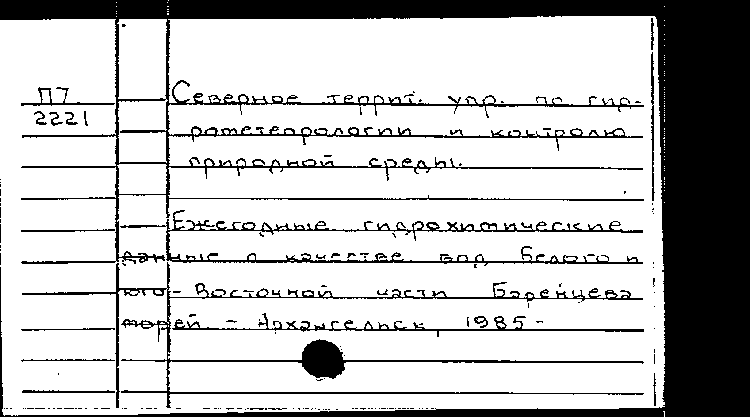 П7
2221
Северное террит. упр. по гид-
рометеорологии и контролю
природной среды.
Ежегодные гидрохимические
данные о качестве вод Белого и
юго-Восточной части Баренцева
морей. - Архангельск, 1985-